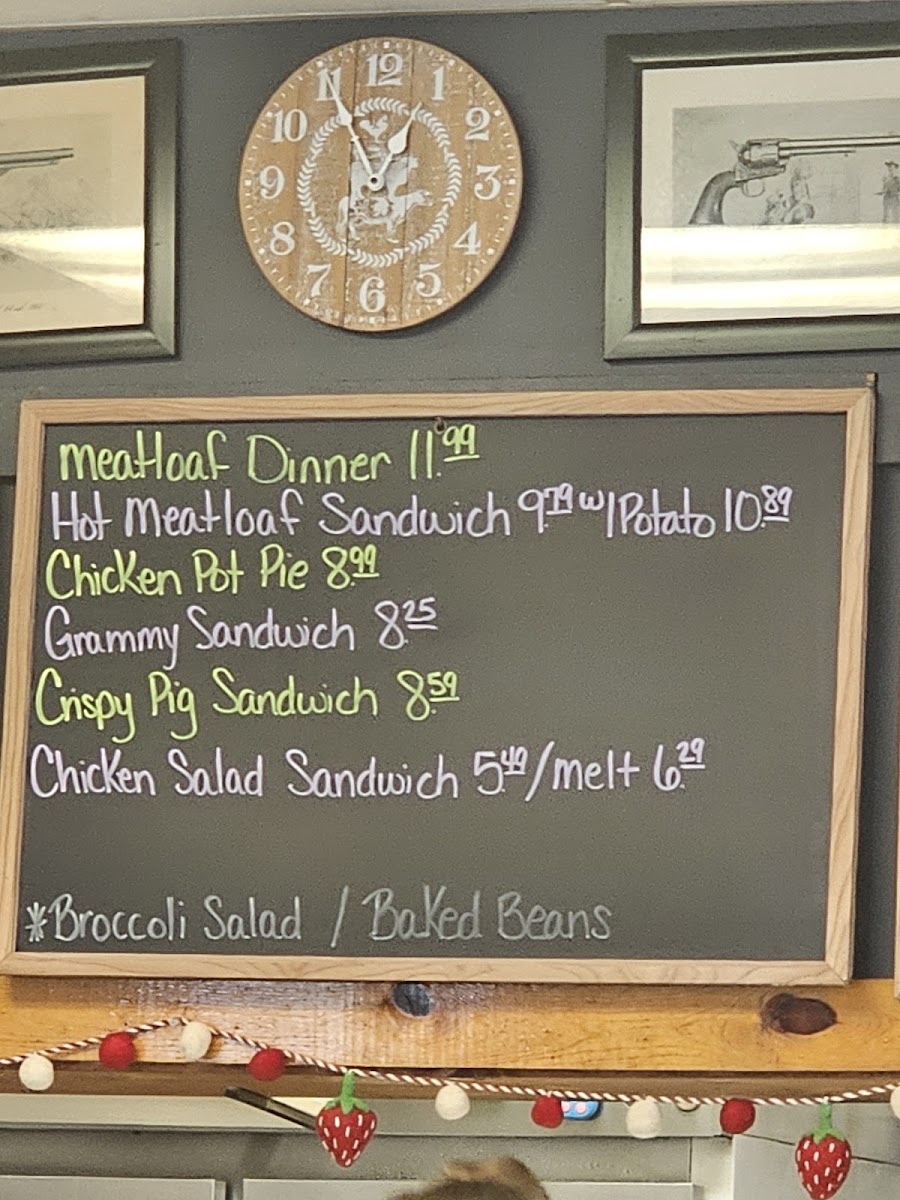 12
11 1
10 2
9 3
8 4
7 5
6
Meatloaf Dinner 11.99
Hot Meatloaf Sandwich 9.79 w/Potato 10.89
Chicken Pot Pie 8.99
Grammy Sandwich 8.25
Crispy Pig Sandwich 8.59
Chicken Salad Sandwich 5.49/melt 6.29
*Broccoli Salad / Baked Beans